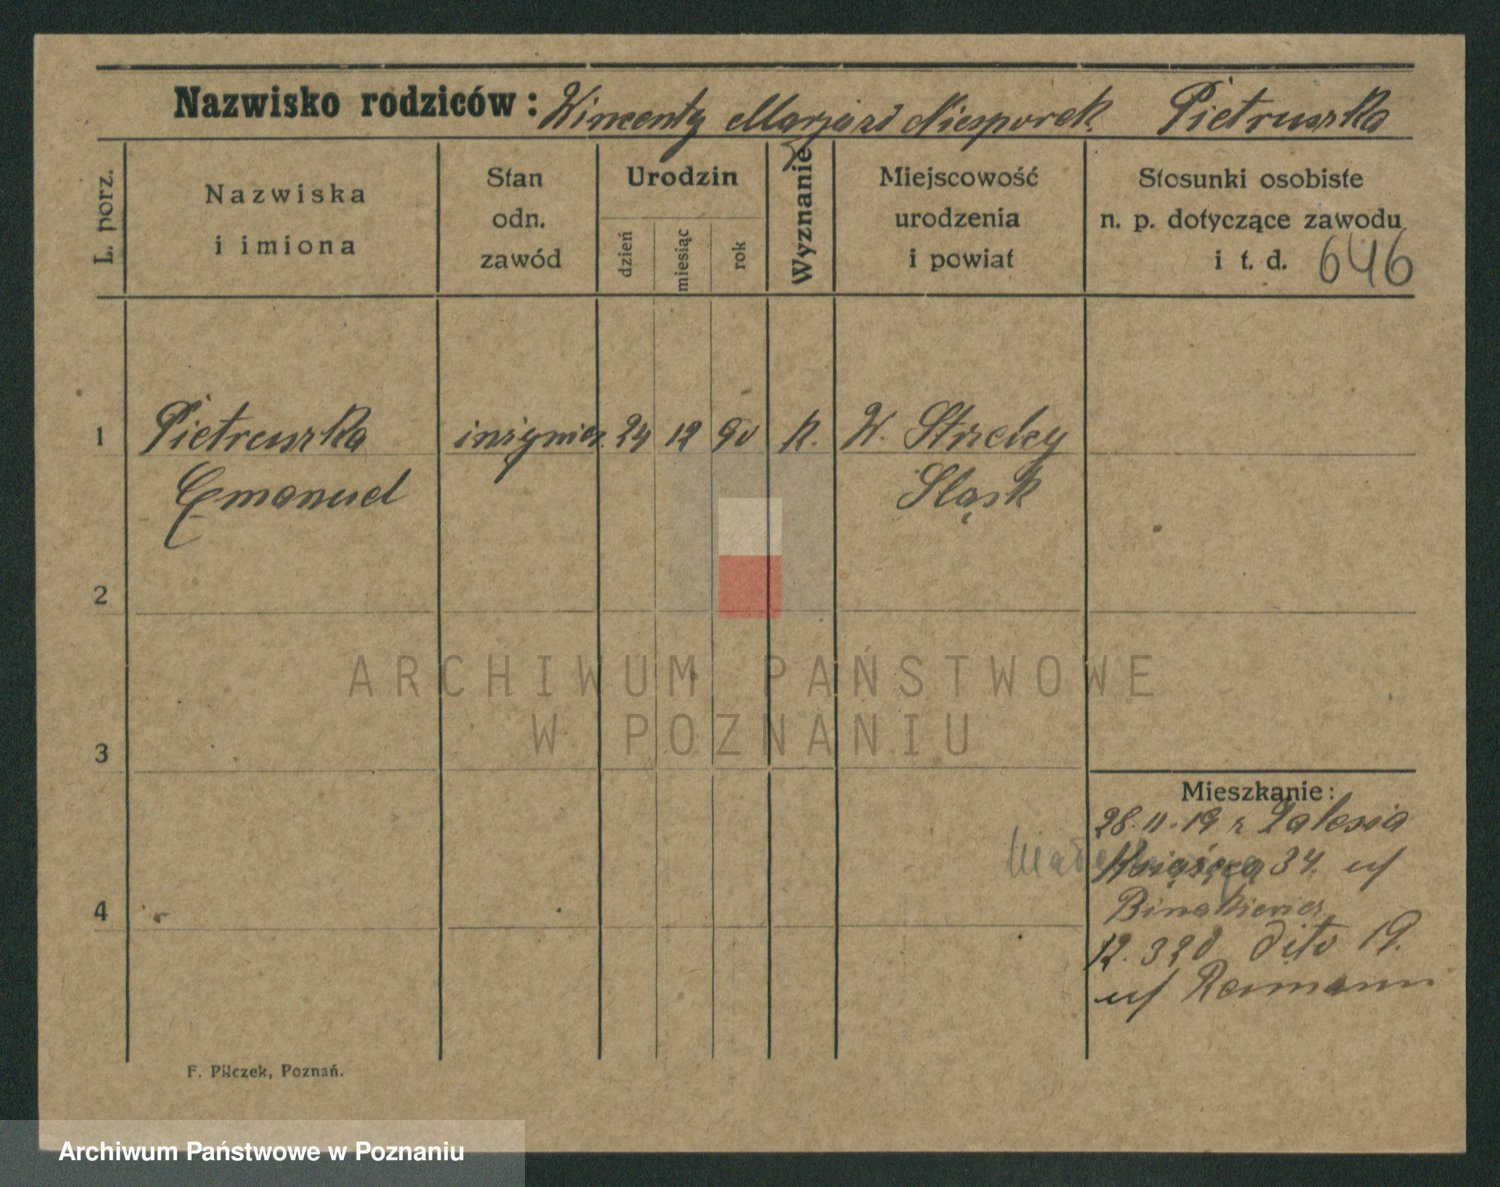 Nazwisko rodziców: Wincenty Marja zd Niesporek. Pietruszka
L. porz.
Nazwiska
i imiona
Stan
odn.
zawód
Urodzin
dzień
miesiąc
rok
Wyznanie
Miejscowość
urodzenia
i powiat
Stosunki osobiste
n. p. dotyczące zawodu
i t. d. 646
1 Pietruszka inżynier. 24 12 90 k. W. Strzelcy
Emanuel Śląsk
2
3
4
ARCHIWUM PAŃSTWOWE
W POZNANIU
Mieszkanie:
28.11.19 z Zalesia
34.
12.3 20 dito 19.
Reimann
F. Pilczek, Poznań.
Archiwum Państwowe w Poznaniu